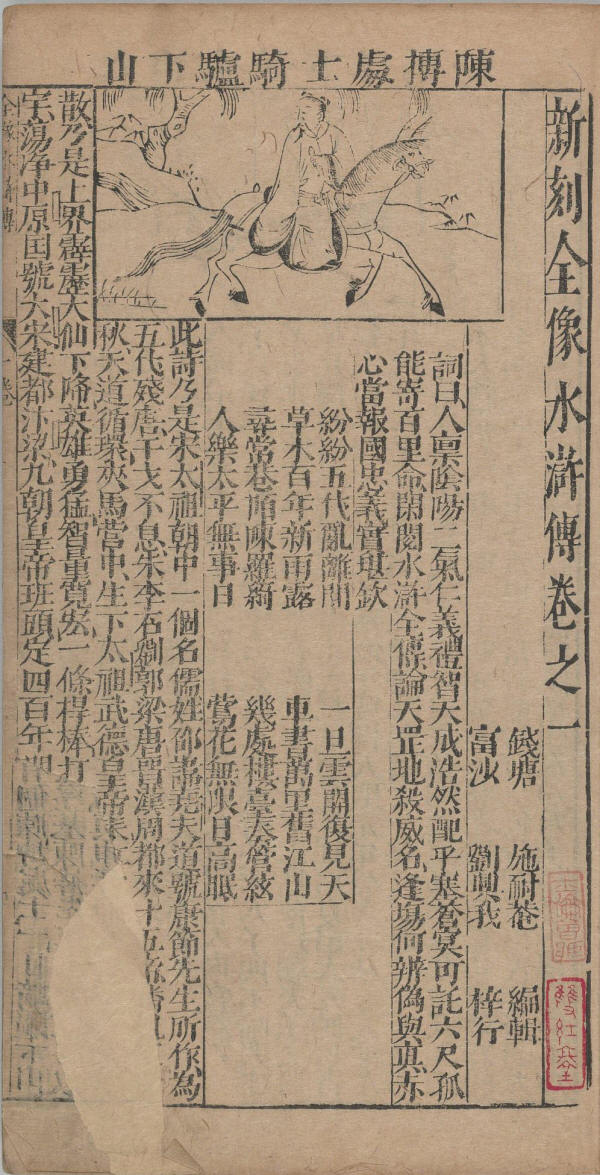 陳摶處士騎驢下山
新刻全像水滸傳卷之一
錢塘 施耐菴 編輯
富沙 劉興我 梓行
詞曰人禀陰陽二氣仁義禮智天成浩然配乎塞蒼冥可託六尺孤
能寄百里命閑閱水滸全傳論天罡地殺威名逢場何辨偽與真亦
心當報國忠義實堪欽
紛紛五代亂離間 一旦雲開復見天
草木百年新雨露 車書萬里舊江山
尋常巷陌陳羅綺 幾處樓臺奏管絃
人樂太平無事日 鶯花無限日高眠
此詩乃是宋太祖朝中一個名儒姓邵諱堯夫道號康節先生所作為
五代殘唐干戈不息朱李石劉郭梁唐晉漢周都來十五帝
秋天道循環夾馬營中生下太祖武德皇帝來
散乃是上界霹靂大仙下降英雄勇猛智量寬宏一條桿棒打
宅蕩净中原囯號大宋建都汴梁九朝皇帝班頭定四百年
全像水滸傳 一卷
雙紅堂